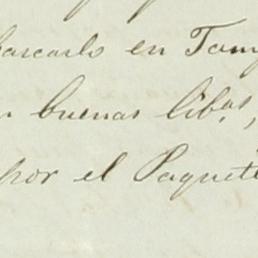 barcarlo en Tam
buenas lib.as,
por el Paquete